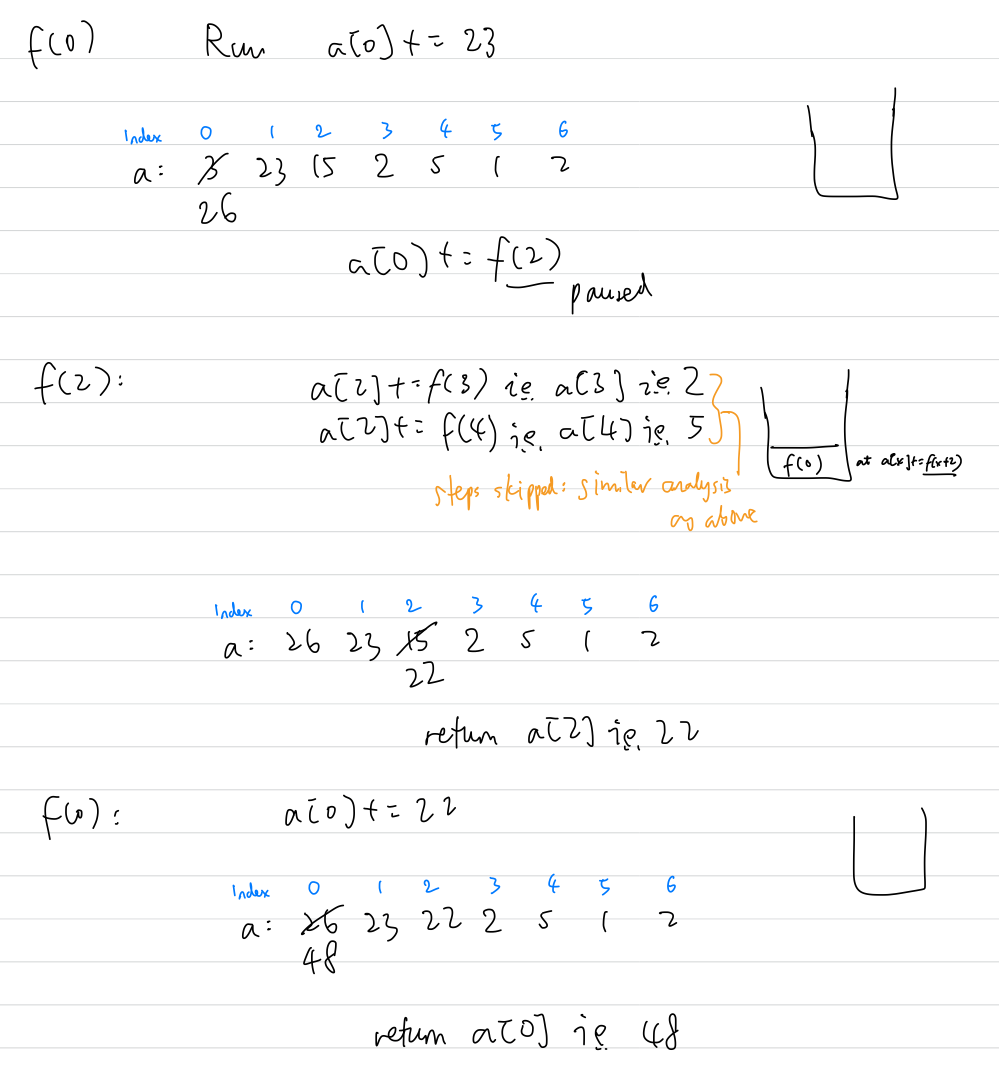 f(0) Run a[0] += 23
Index 0 1 2 3 4 5 6
a: 3 23 15 2 5 1 2
26
a[0] += f(2)
paused
f(2): a[2] += f(3) i.e. a[3] i.e. 2
a[2] += f(4) i.e. a[4] i.e. 5
f(0) at a[x] += f(x+2)
steps skipped: similar analysis
as above
Index 0 1 2 3 4 5 6
a: 26 23 15 2 5 1 2
22
return a[2] i.e. 22
f(0): a[0] += 22
Index 0 1 2 3 4 5 6
a: 26 23 22 2 5 1 2
48
return a[0] i.e. 48